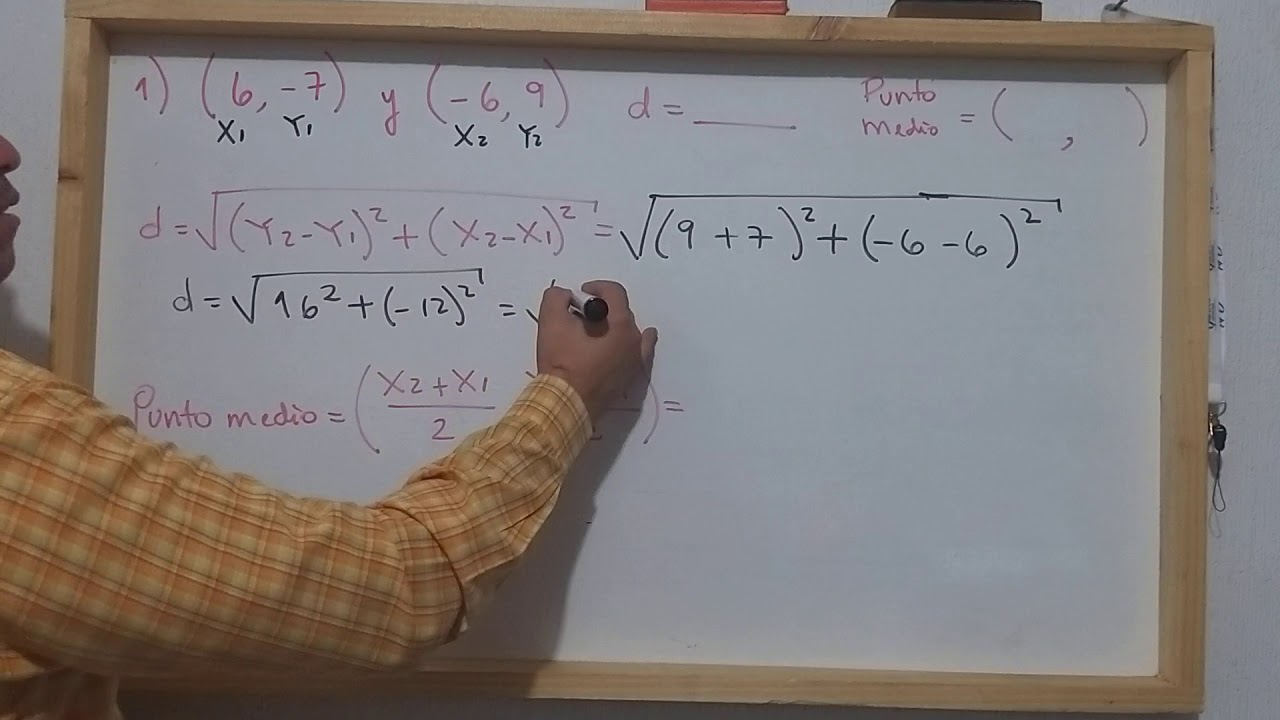 1) (6, -7) y (-6, 9) d = ____ Punto medio = ( , )
X₁ Y₁ X₂ Y₂
d = √((Y₂-Y₁)² + (X₂-X₁)²) = √((9 +7)² + (-6 -6)²)
d = √(16² + (-12)²) = √
Punto medio = (X₂+X₁/2 ) =